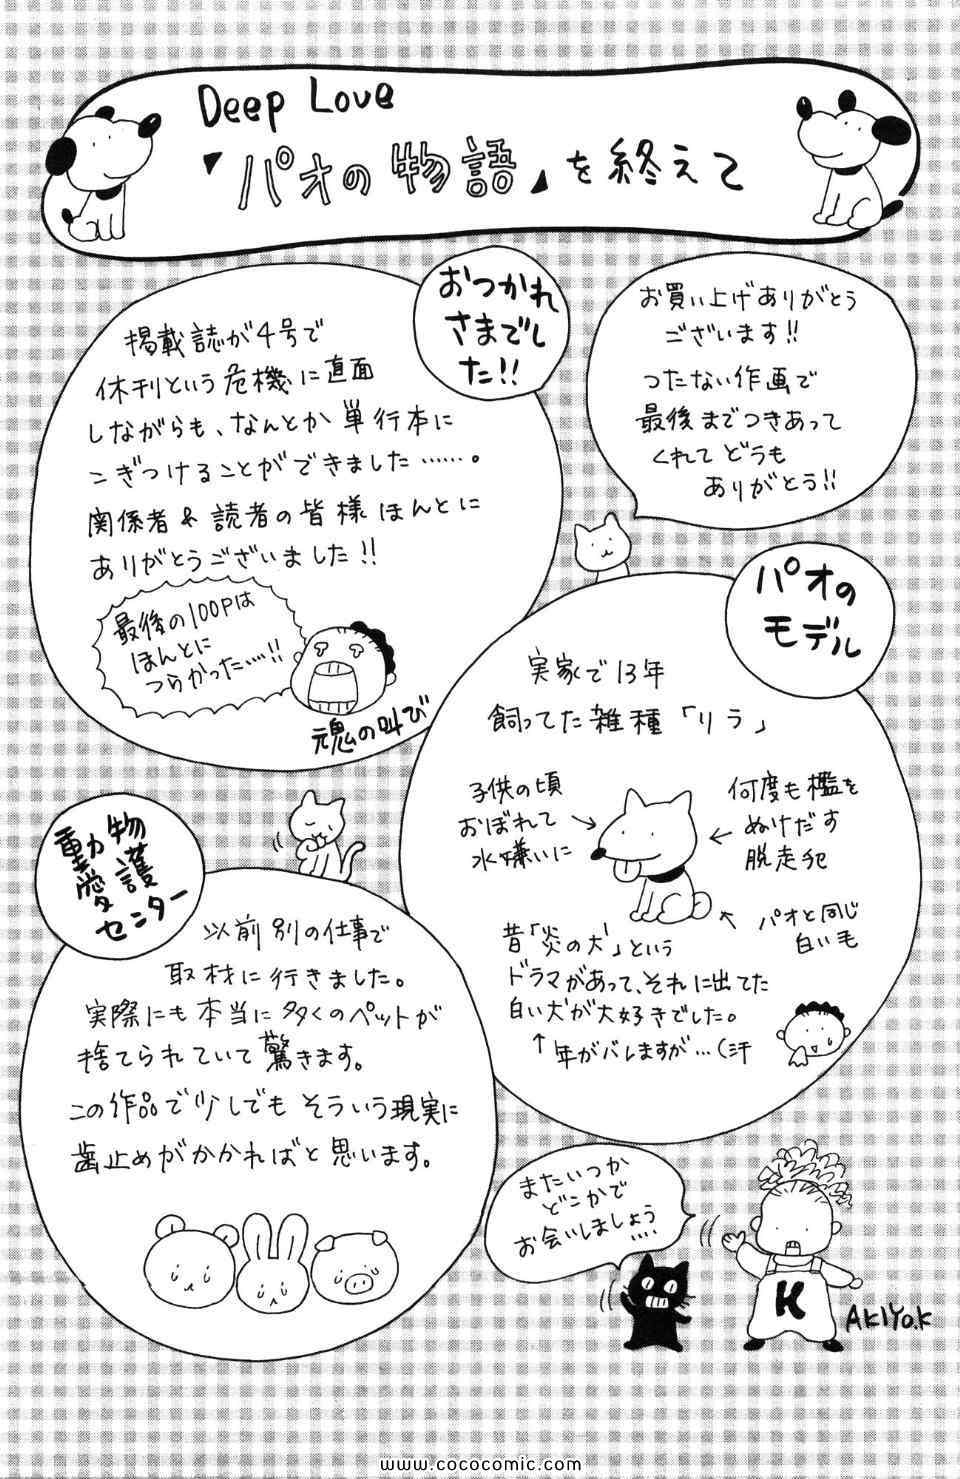 Deep Love
「パオの物語」を終えて
おつかれ
さまでし
た!!
掲載誌が4号で
休刊という危機に直面
しながらも、なんとか単行本に
こぎつけることができました……。
関係者&読者の皆様ほんとに
ありがとうございました!!
最後の100Pは
ほんとに
つらかった…!!
魂の叫び
お買い上げありがとう
ございます!!
つたない作画で
最後までつきあって
くれてどうも
ありがとう!!
パオの
モデル
実家で13年
飼ってた雑種「リラ」
子供の頃
おぼれて
水嫌いに
何度も檻を
ぬけだす
脱走犯
パオと同じ
白い毛
昔「炎の犬」という
ドラマがあって、それに出てた
白い犬が大好きでした。
↑年がバレますが…(汗
動物
愛護
センター
以前別の仕事で
取材に行きました。
実際にも本当に多くのペットが
捨てられていて驚きます。
この作品で少しでもそういう現実に
歯止めがかかればと思います。
またいつか
どこかで
お会いしましょう
....
K
AKIYO.K
www.cococomic.com